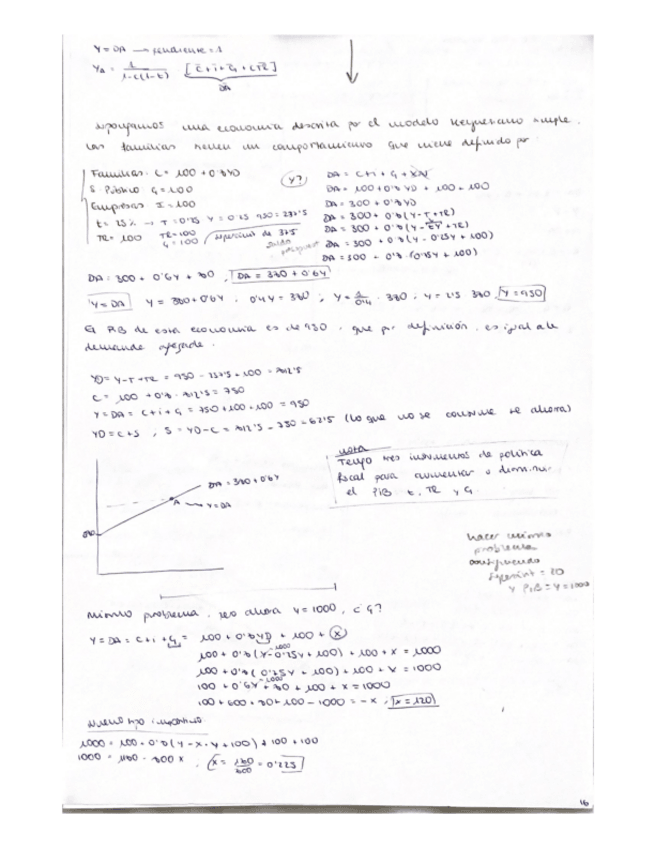 Y = DA → pendiente = 1
Ya = 1 / 1-c(1-t) [C̄ + Ī + Ḡ + cTR]
DA
Supongamos una economía descrita por el modelo keynesiano simple.
Las familias tienen un comportamiento que viene definido por:
Familias. C = 100 + 0'8YD
S. Público G = 100
Empresas I = 100
t = 25% → T = 0'25 Y = 0'25 · 950 = 237'5
TR = 100 TR = 100
G = 100 superávit de 37'5
Y?
DA = C + I + G + XN
DA = 100 + 0'8YD + 100 + 100
DA = 300 + 0'8YD
DA = 300 + 0'8(Y - T + TR)
DA = 300 + 0'8(Y - tY + TR)
DA = 300 + 0'8(Y - 0'25Y + 100)
DA = 300 + 0'8 (0'75Y + 100)
DA = 300 + 0'6Y + 80, DA = 380 + 0'6Y
Y = DA Y = 380 + 0'6Y . 0'4Y = 380 ; Y = 1/0'4 · 380 ; Y = 2'5 · 380, Y = 950
El PIB de esta economía es de 950, que por definición, es igual a la
demanda agregada.
YD = Y - T + TR = 950 - 237'5 + 100 = 812'5
C = 100 + 0'8 · 812'5 = 750
Y = DA = C + I + G = 750 + 100 + 100 = 950
YD = C + S, S = YD - C = 812'5 - 750 = 62'5 (lo que no se consume se ahorra)
nota
Tengo tres instrumentos de política
fiscal para aumentar o disminuir
el PIB t, TR y G.
DA = 380 + 0'6Y
A
Y = DA
380
hacer mismo
problema
consiguiendo
superávit = 20
y PIB = Y = 1000
mismo problema, pero ahora Y = 1000, ¿G?
Y = DA = C + I + G = 100 + 0'8YD + 100 + X
100 + 0'8(Y - 0'25Y + 100) + 100 + X = 1000
100 + 0'8(0'75Y + 100) + 100 + X = 1000
100 + 0'6Y + 80 + 100 + X = 1000
100 + 600 + 80 + 100 - 1000 = -X, X = 120
nuevo tipo impositivo
1000 = 100 + 0'8(Y - X · Y + 100) + 100 + 100
1000 = 1180 - 800X, X = 180/800 = 0'225
16